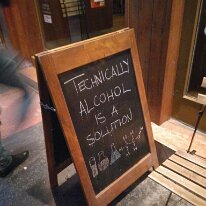 TECHNICALLY
ALCOHOL
IS A
SOLUTION